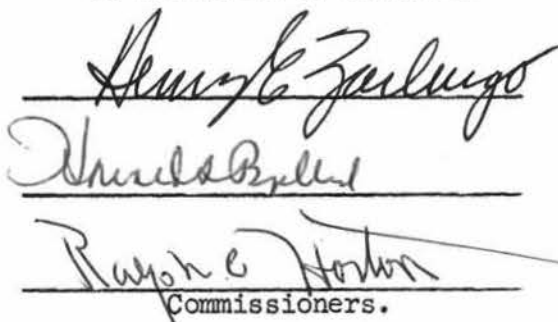 Henry E Zarlengo
Howard S Bjelland
Ralph C Horton
Commissioners.